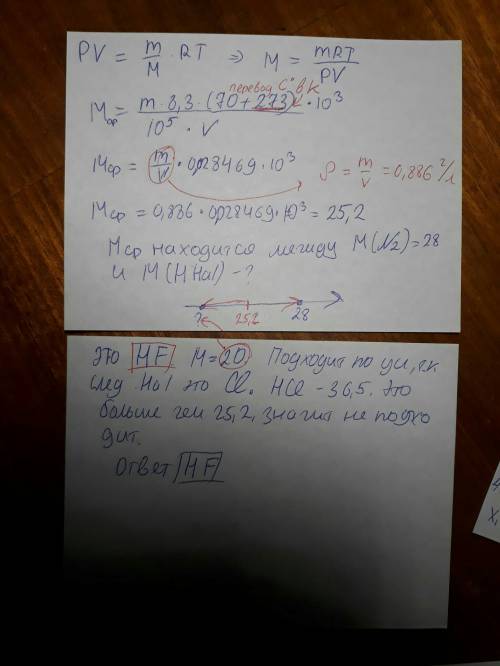 PV = m/M · RT ⇒ M = mRT/PV
перевод C° в К
Mср = m · 8,3 · (70 + 273) · 10³ / 10⁵ · V
Mср = m/V · 0,028469 · 10³
ρ = m/V = 0,886 г/л
Mср = 0,886 · 0,028469 · 10³ = 25,2
Mср находится между M(N₂) = 28
и M(HHal) - ?
? 25,2 28
Это HF. M = 20 Подходит по усл, т.к
след Hal это Cl. HCl - 36,5. Это
больше чем 25,2, значит не подхо
дит.
Ответ HF